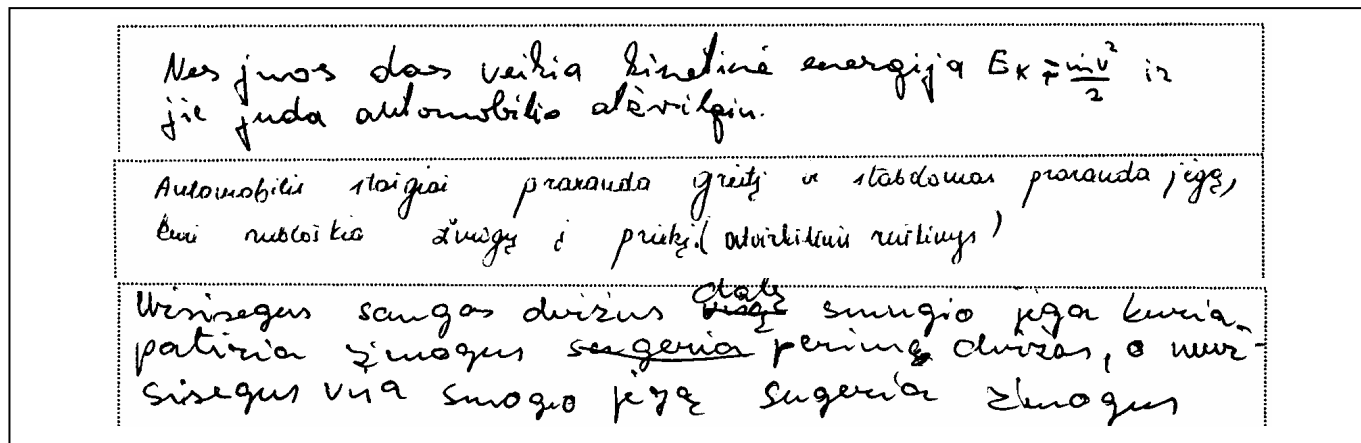 Nes juos dar veikia kinetinė energija Eₖ = mv²/2 ir
jie juda automobilio atžvilgiu.
Automobilis staigiai praranda greitį ir stabdomas praranda jėgą,
kuri nubloškia žmogų į priekį.
Užsisegus saugos diržus dalį smugio jėga kuria
patiria žmogus sugeria perima diržas, o neuž-
sisegus visa smogio jėgą sugeria žmogus